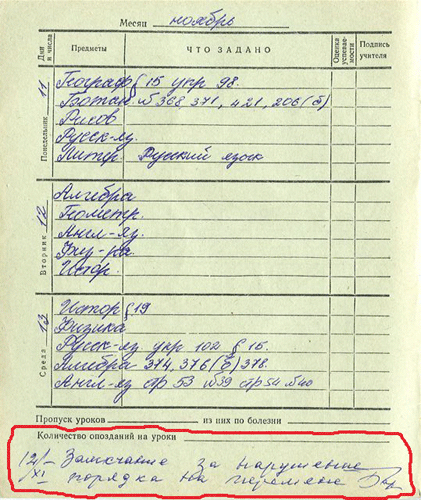 Месяц ноябрь
Дни и числа Предметы ЧТО ЗАДАНО Оценка успеваемости Подпись учителя
Понедельник 11
Географ § 15 упр 98.
Ботан № 368, 371, 421, 206(б)
Рисов
Русск-яз.
Литер Русский язык
Вторник 12
Алгебра
Геометр.
Англ-яз.
Физ-ра.
Истор.
Среда 13
Истор § 19
Физика
Русск-яз упр 102 § 15.
Алгебра 374, 376(б) 378.
Англ-яз стр 53 №39 стр 54 №40
Пропуск уроков из них по болезни
Количество опозданий на уроки
12/XI – Замечание за нарушение
порядка на перемене